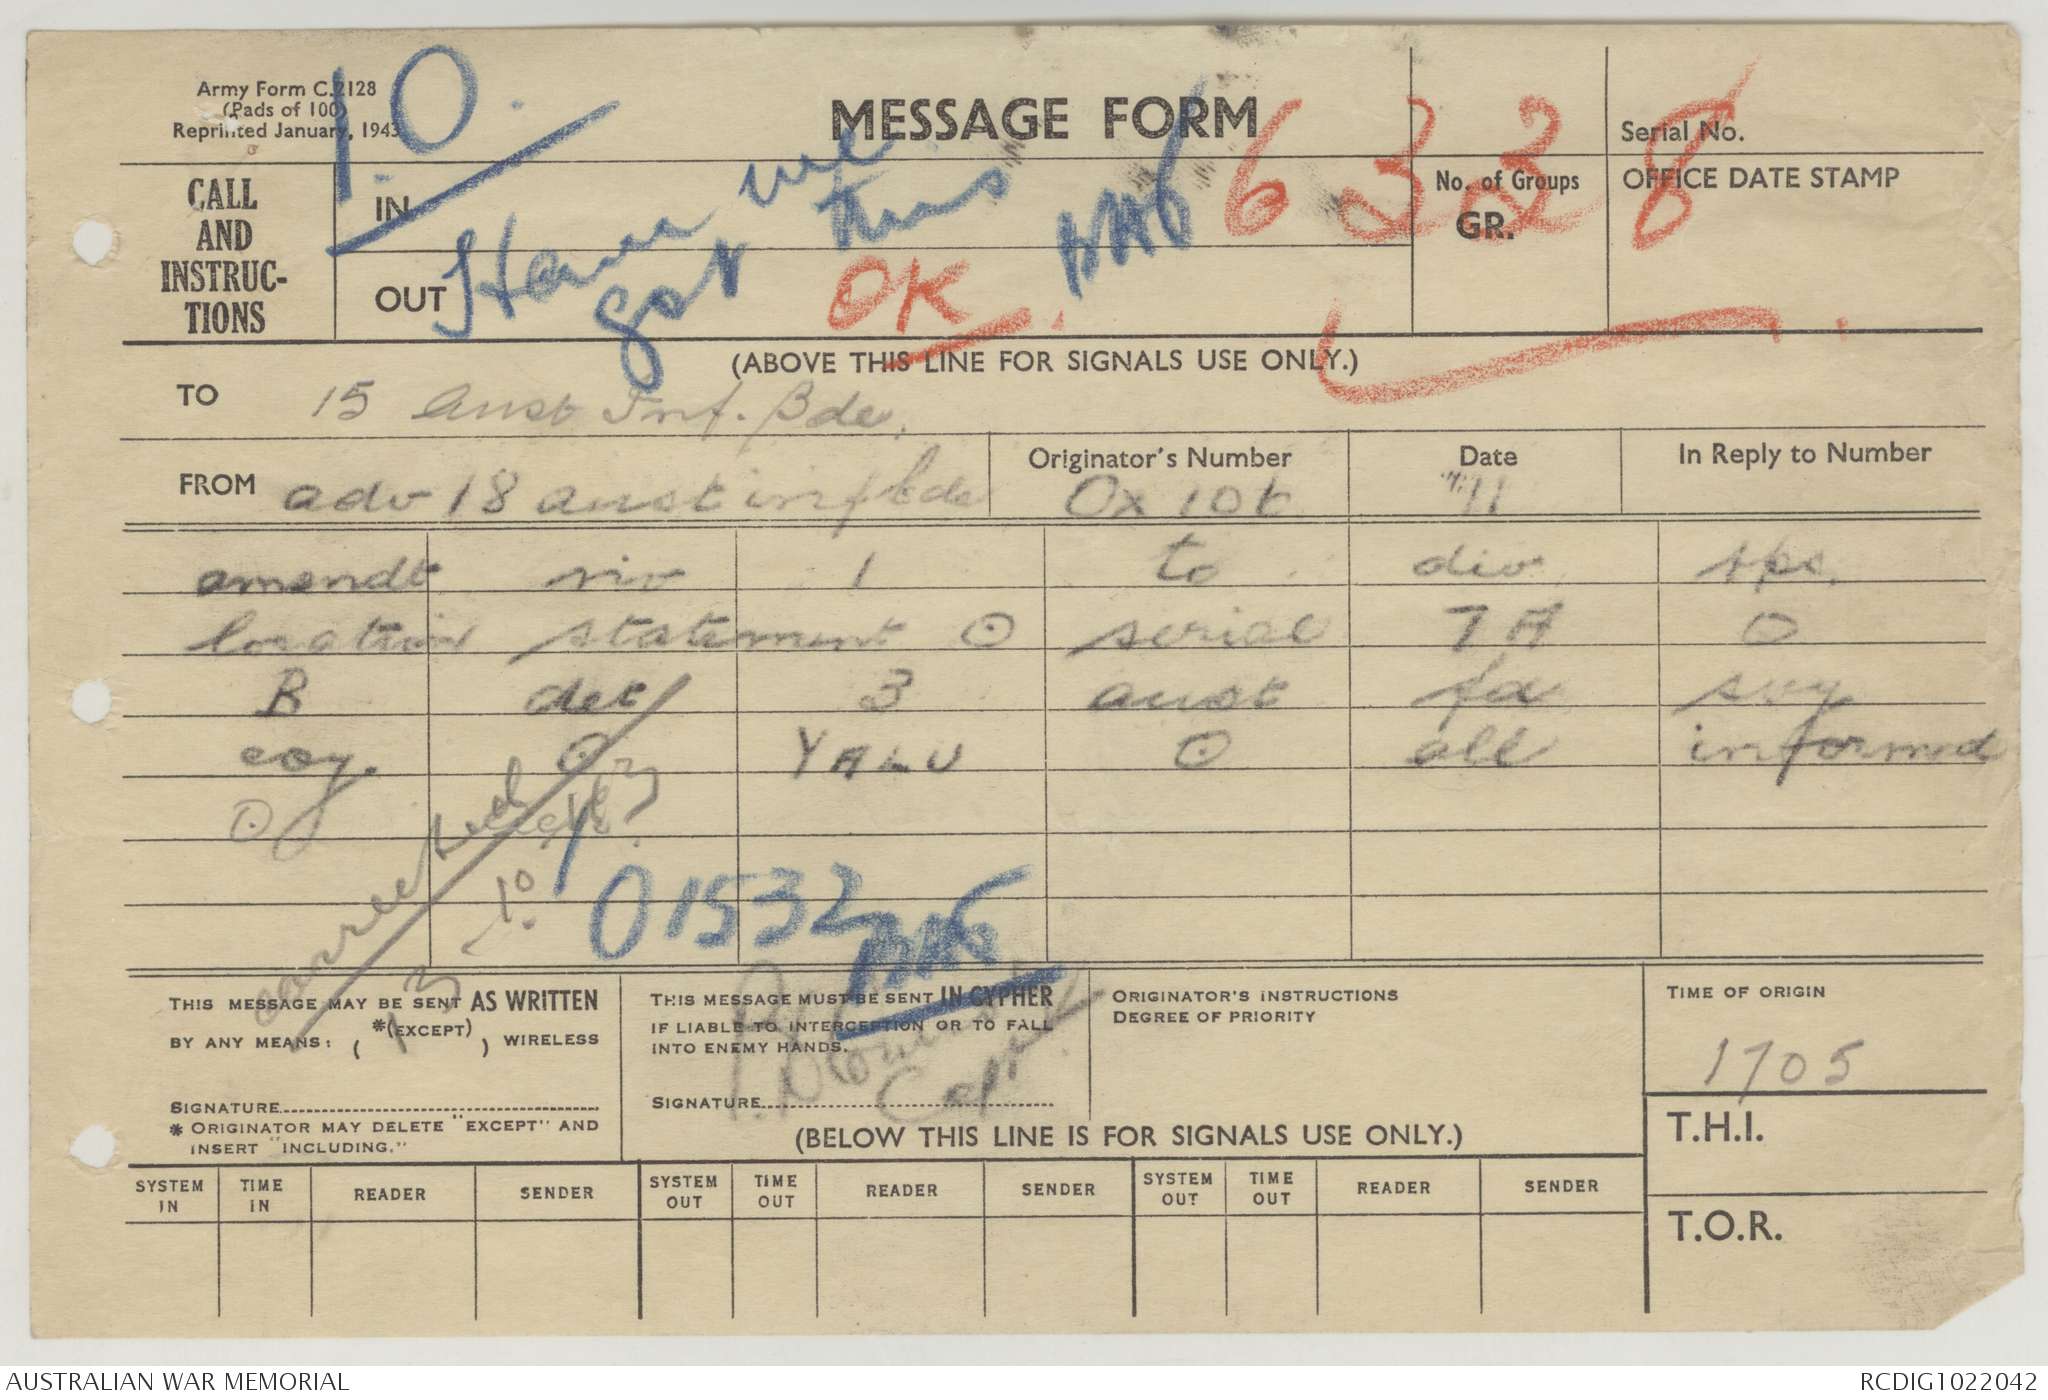 Army Form C.2128
(Pads of 100)
Reprinted January, 1943
I.O.
MESSAGE FORM
Serial No.
CALL
AND
INSTRUC-
TIONS
IN
OUT
Have we
got this
OK.
6328
No. of Groups
GR.
OFFICE DATE STAMP
(ABOVE THIS LINE FOR SIGNALS USE ONLY.)
TO 15 Aust Inf. Bde.
FROM adv 18 aust inf bde
Originator's Number
Ox 106
Date
11
In Reply to Number
amendt 1 to div
location statement ⊙ serial 7 A ⊙
B det 3 aust fd svy
coy. ⊙ YALU ⊙ all informd
⊙
01532
THIS MESSAGE MAY BE SENT AS WRITTEN
BY ANY MEANS: ( *(EXCEPT) ) WIRELESS
SIGNATURE
* ORIGINATOR MAY DELETE "EXCEPT" AND
INSERT "INCLUDING."
THIS MESSAGE MUST BE SENT IN CYPHER
IF LIABLE TO INTERCEPTION OR TO FALL
INTO ENEMY HANDS.
SIGNATURE
ORIGINATOR'S INSTRUCTIONS
DEGREE OF PRIORITY
TIME OF ORIGIN
1705
T.H.I.
T.O.R.
(BELOW THIS LINE IS FOR SIGNALS USE ONLY.)
SYSTEM IN TIME IN READER SENDER SYSTEM OUT TIME OUT READER SENDER SYSTEM OUT TIME OUT READER SENDER
AUSTRALIAN WAR MEMORIAL
RCDIG1022042